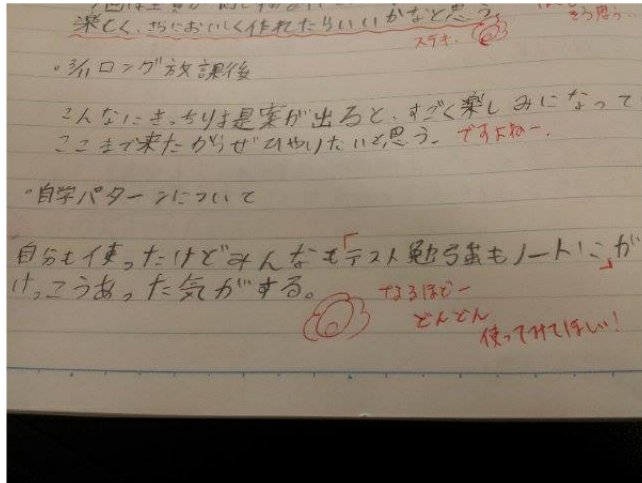 楽しく、さらにおいしく作れたらいいかなと思う。
ステキ。
そう思う…
・3/11ロング放課後
こんなにきっちりな提案が出ると、すごく楽しみになって
ここまで来たからぜひやりたいと思う。ですよねー。
・自学パターンについて
自分も使ったけどみんなも「テスト勉強もノートに」が
けっこうあった気がする。
なるほどー
どんどん
使ってみてほしい!